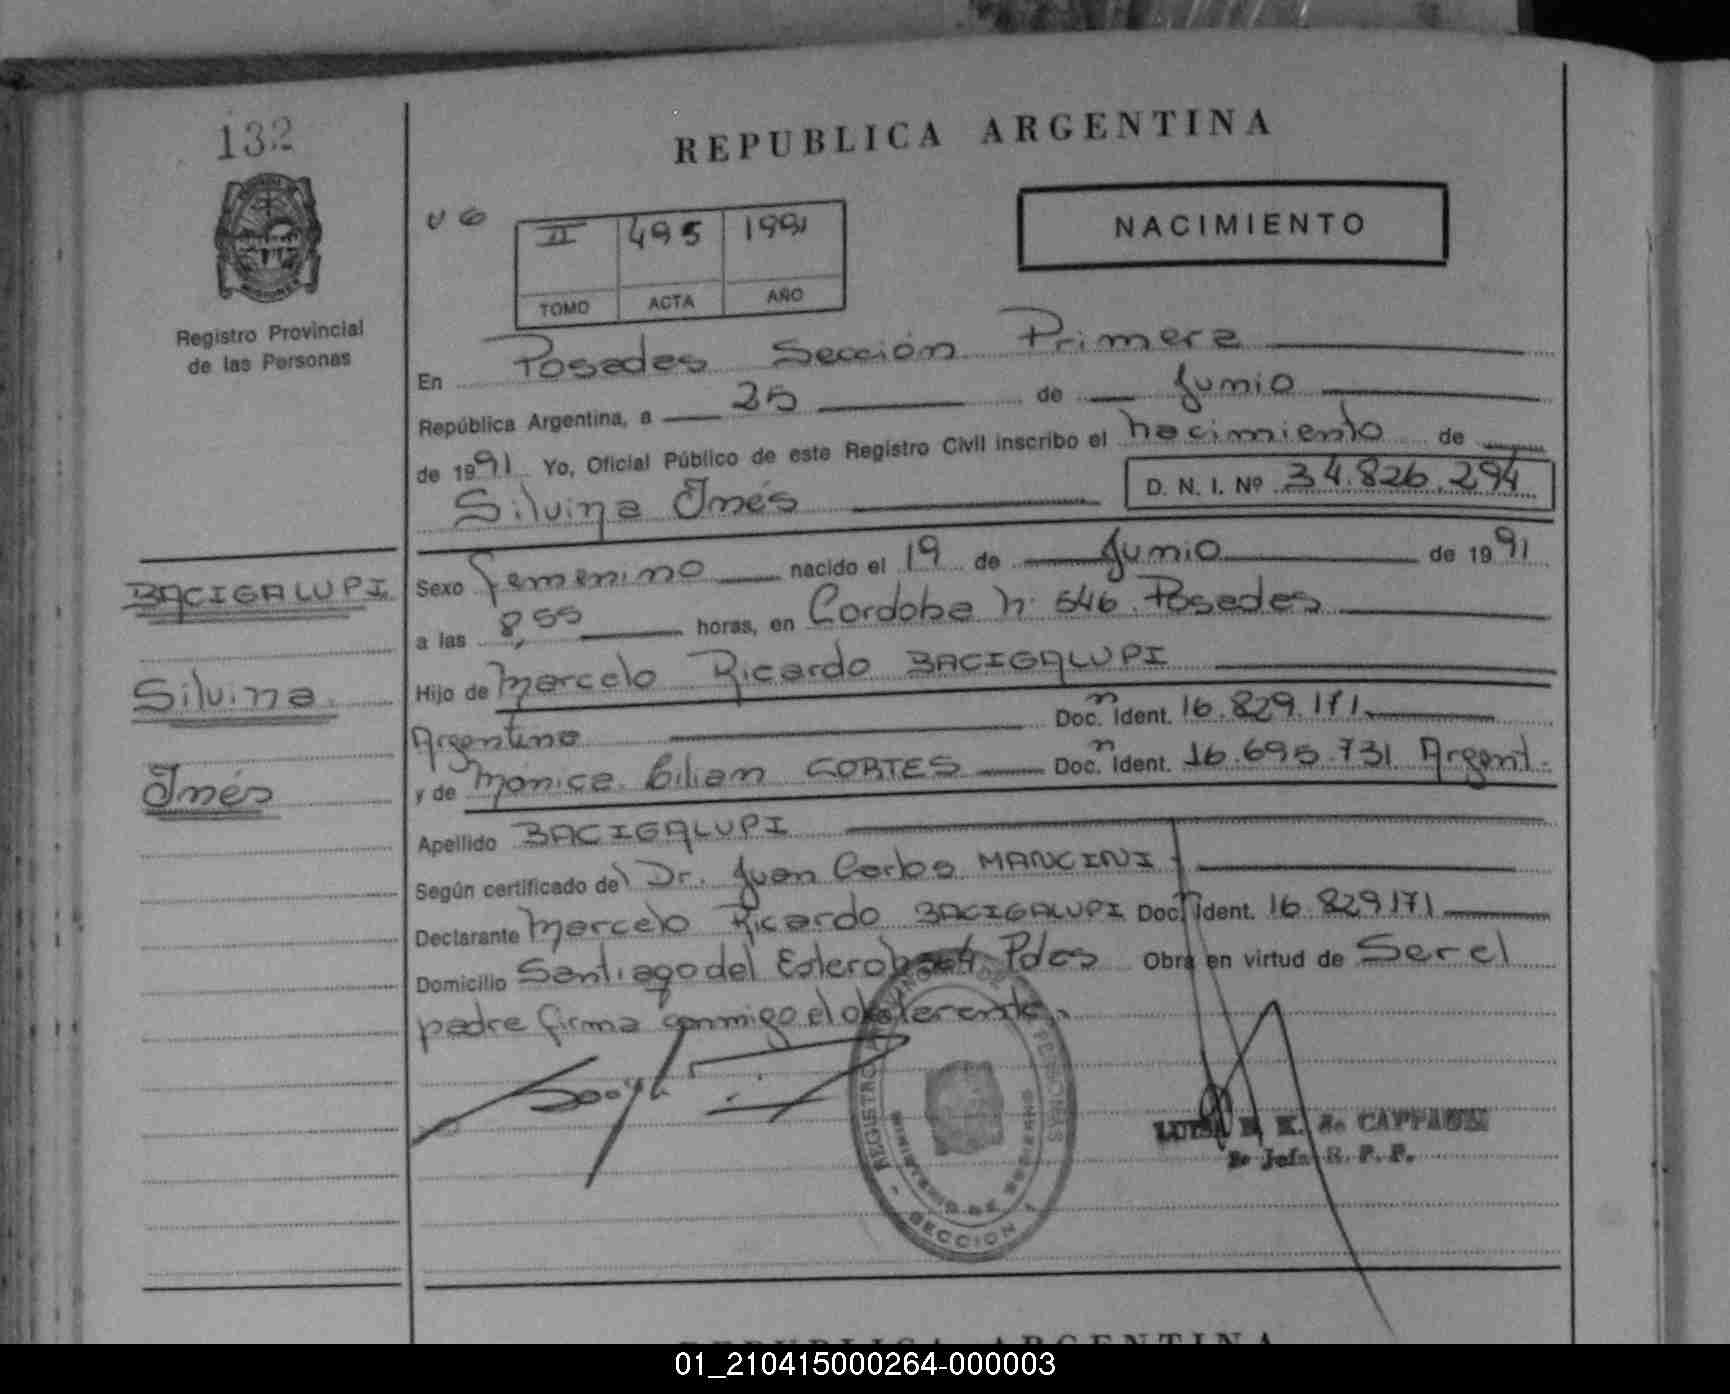 132
REPUBLICA ARGENTINA
II 495 1991
TOMO ACTA AÑO
NACIMIENTO
Registro Provincial
de las Personas
En Posadas Sección Primera
República Argentina, a 25 de Junio
de 1991 Yo, Oficial Público de este Registro Civil inscribo el nacimiento de
Silvina Inés D. N. I. Nº 34.826.294
BACIGALUPI
Silvina
Inés
Sexo femenino nacido el 19 de Junio de 1991
a las 8,55 horas, en Cordoba nº 546 Posadas
Hijo de Marcelo Ricardo BACIGALUPI
Argentino Doc. Ident. 16.829.171
y de Mónica Lilian CORTES Doc. Ident. 16.695.731 Argent.
Apellido BACIGALUPI
Según certificado del Dr. Juan Carlos MANCINI
Declarante Marcelo Ricardo BACIGALUPI Doc. Ident. 16.829171
Domicilio Santiago del Estero Pdas Obra en virtud de Ser el
padre firma conmigo el
REGISTRO PROVINCIAL DE LAS PERSONAS
MINISTERIO DE GOBIERNO
SECCION 1
LUISA E. K. de
Jefa R. P. P.
REPUBLICA ARGENTINA
01_210415000264-000003